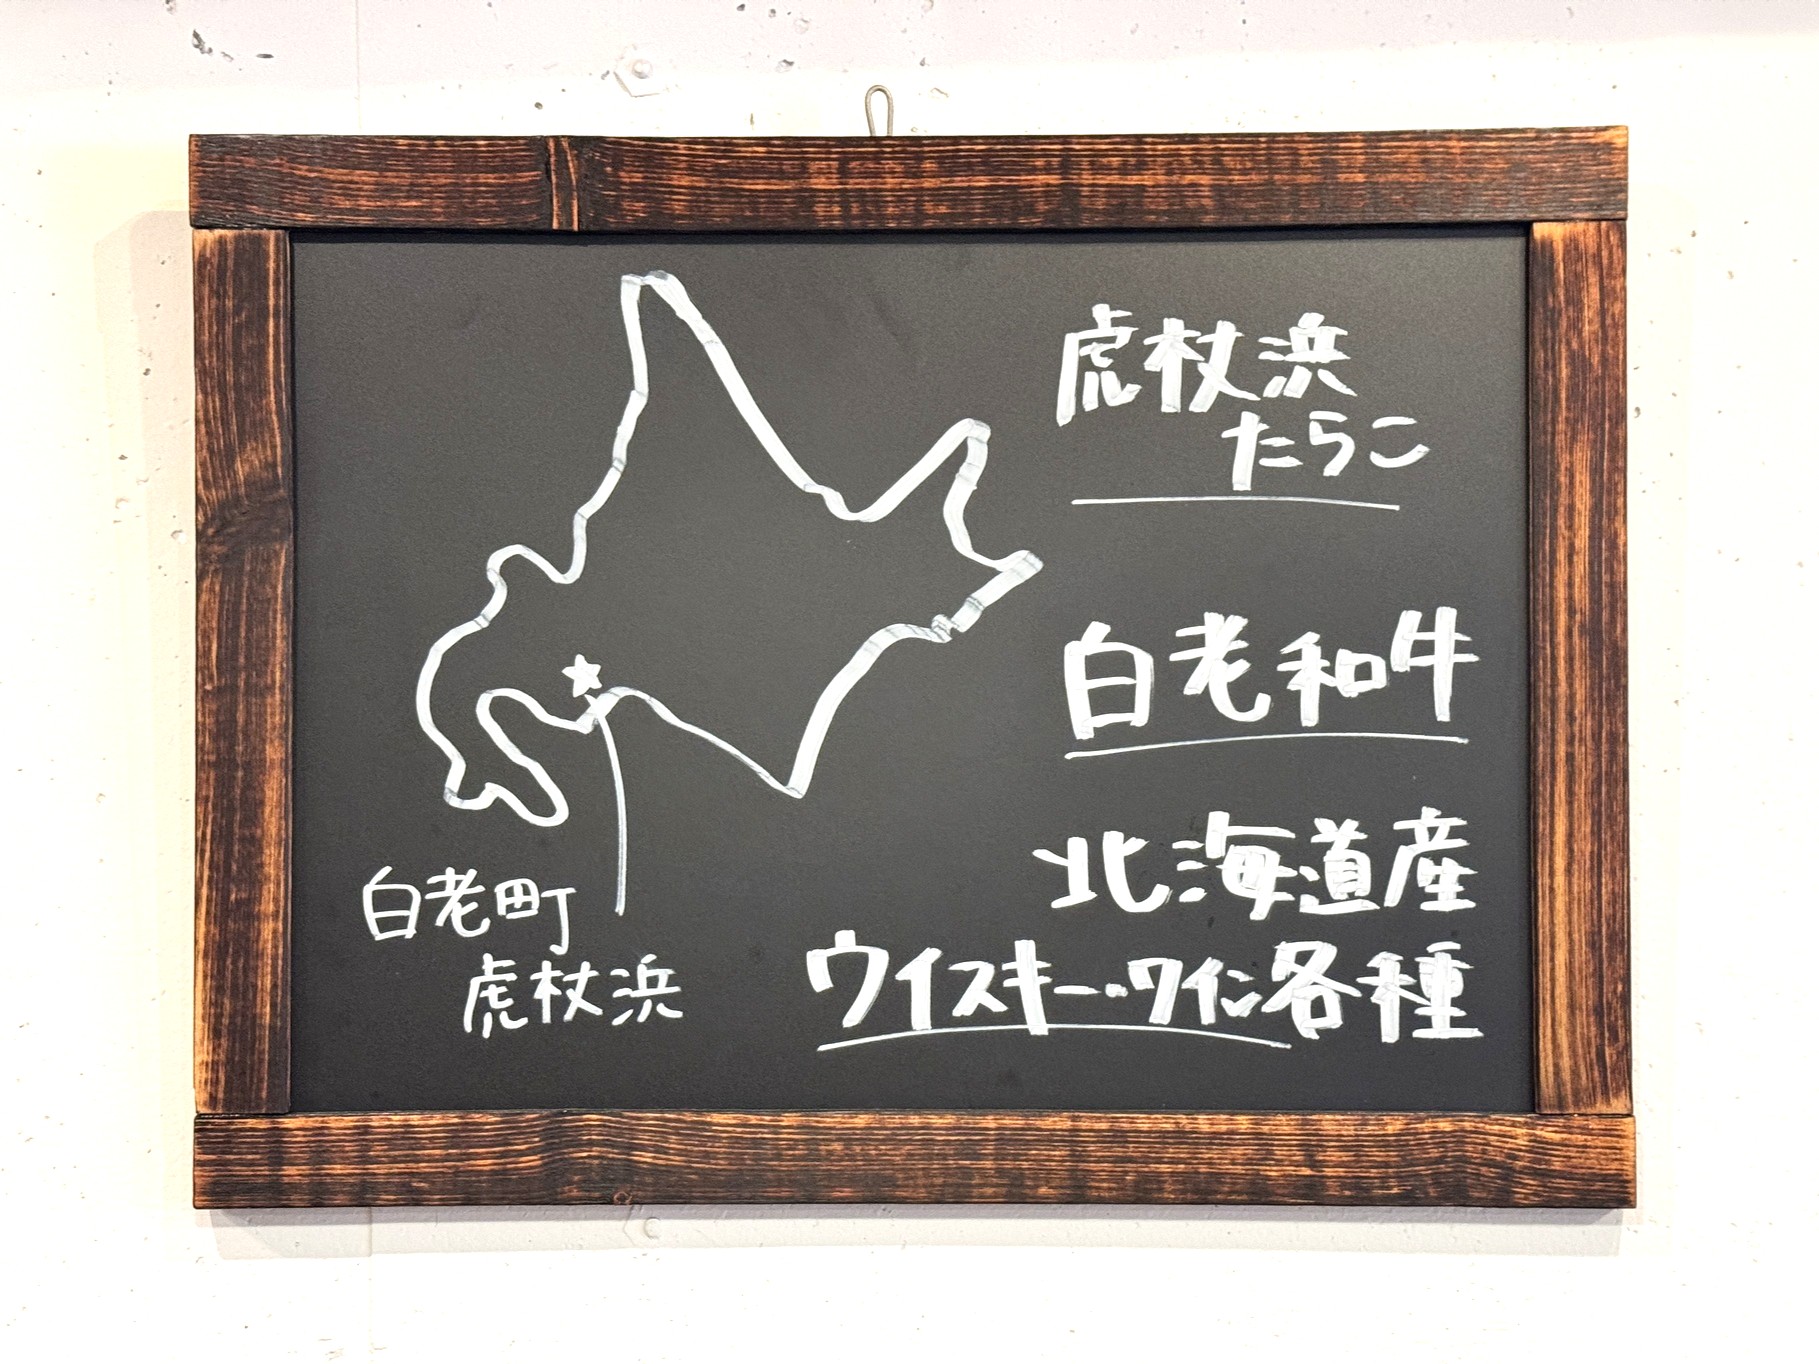 虎杖浜
たらこ
白老和牛
北海道産
ウイスキー・ワイン各種
白老町
虎杖浜